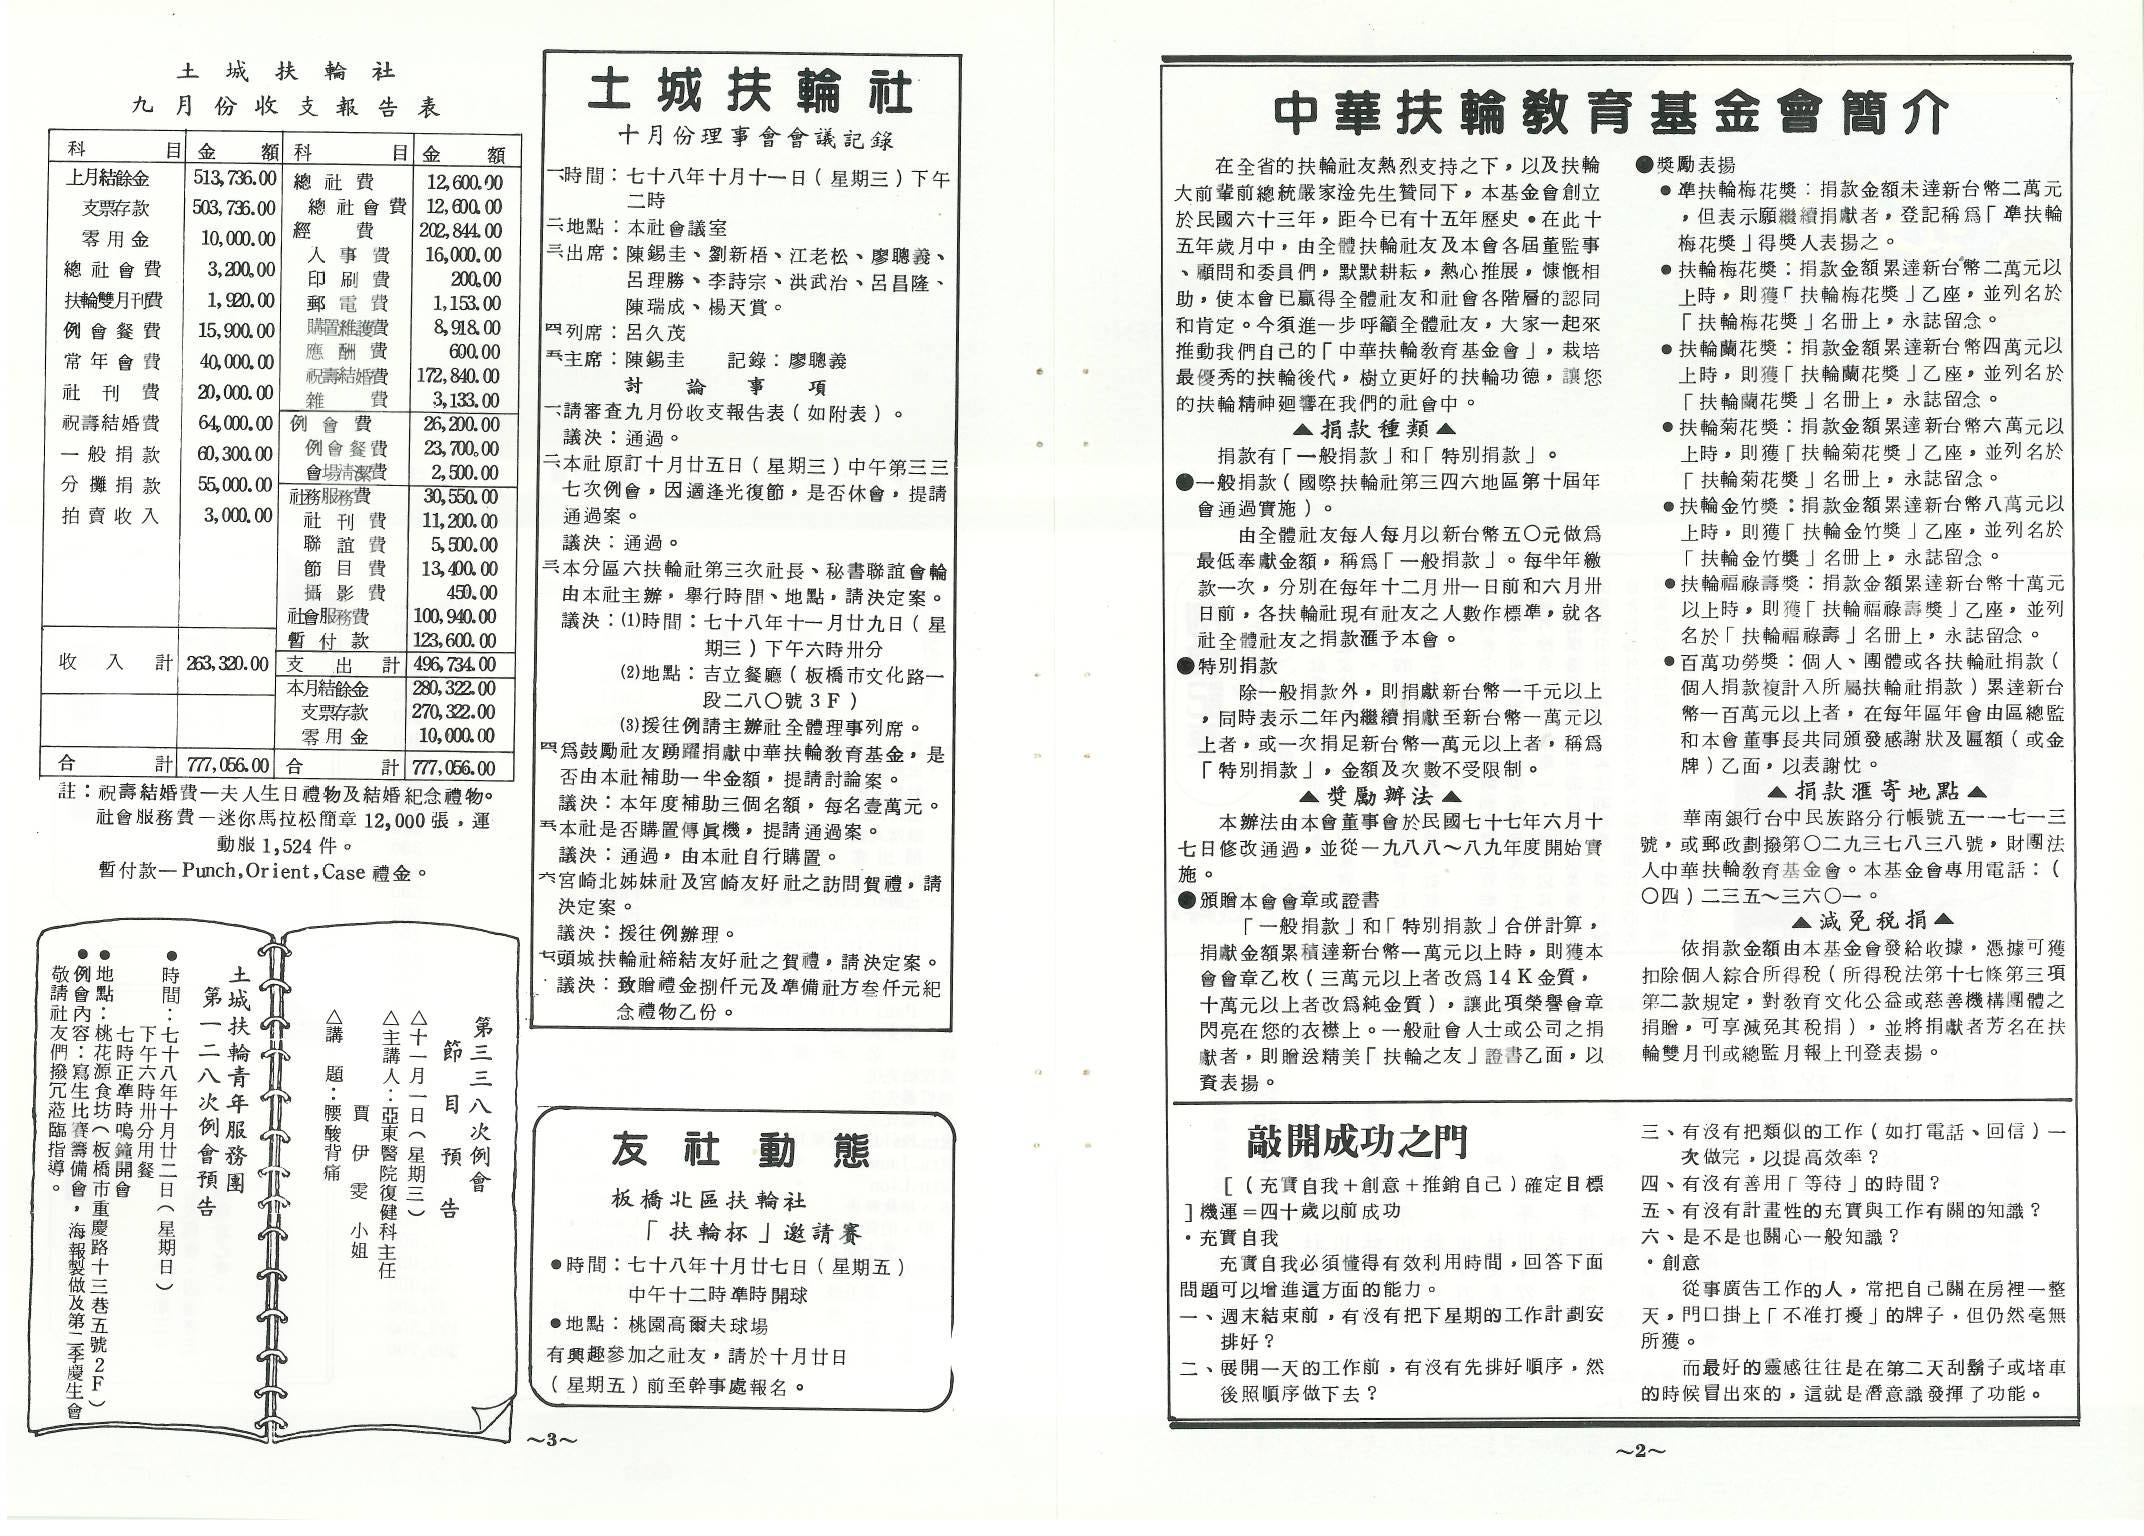 土城扶輪社
九月份收支報告表
科目 金額 科目 金額
上月結餘金 513,736.00 總社費 12,600.00
支票存款 503,736.00 總社會費 12,600.00
零用金 10,000.00 經費 202,844.00
總社會費 3,200,00 人事費 16,000.00
扶輪雙月刊費 1,920.00 印刷費 200,00
例會餐費 15,900.00 郵電費 1,153.00
常年會費 40,000.00 購置維護費 8,918.00
社刊費 20,000.00 應酬費 600.00
祝壽結婚費 64,000.00 祝壽結婚費 172,840.00
一般捐款 60,300.00 雜費 3,133.00
分攤捐款 55,000.00 例會費 26,200.00
拍賣收入 3,000.00 例會餐費 23,700,00
會場清潔費 2,500.00
社務服務費 30,550.00
社刊費 11,200.00
聯誼費 5,500.00
節目費 13,400.00
攝影費 450.00
社會服務費 100,940.00
暫付款 123,600.00
收入計 263,320.00 支出計 496,734.00
本月結餘金 280,322.00
支票存款 270,322.00
零用金 10,000.00
合計 777,056.00 合計 777,056.00
註：祝壽結婚費—夫人生日禮物及結婚紀念禮物。
社會服務費—迷你馬拉松簡章12,000張，運
動服1,524件。
暫付款—Punch,Orient,Case禮金。
第三三八次例會
節目預告
△十一月一日（星期三）
△主講人：亞東醫院復健科主任
賈伊雯小姐
△講題：腰酸背痛
土城扶輪青年服務團
第一二八次例會預告
●時間：七十八年十月廿二日（星期日）
下午六時卅分用餐
七時正準時鳴鐘開會
●地點：桃花源食坊（板橋市重慶路十三巷五號2F）
●例會內容：寫生比賽籌備會，海報製做及第二季慶生會
敬請社友們撥冗蒞臨指導。
土城扶輪社
十月份理事會會議記錄
一、時間：七十八年十月十一日（星期三）下午
二時
二、地點：本社會議室
三、出席：陳錫圭、劉新梧、江老松、廖聰義、
呂理勝、李詩宗、洪武治、呂昌隆、
陳瑞成、楊天賞。
四、列席：呂久茂
五、主席：陳錫圭　記錄：廖聰義
討論事項
一、請審查九月份收支報告表（如附表）。
議決：通過。
二、本社原訂十月廿五日（星期三）中午第三三
七次例會，因適逢光復節，是否休會，提請
通過案。
議決：通過。
三、本分區六扶輪社第三次社長、秘書聯誼會輪
由本社主辦，舉行時間、地點，請決定案。
議決：⑴時間：七十八年十一月廿九日（星
期三）下午六時卅分
⑵地點：吉立餐廳（板橋市文化路一
段二八〇號3F）
⑶援往例請主辦社全體理事列席。
四、爲鼓勵社友踴躍捐獻中華扶輪教育基金，是
否由本社補助一半金額，提請討論案。
議決：本年度補助三個名額，每名壹萬元。
五、本社是否購置傳眞機，提請通過案。
議決：通過，由本社自行購置。
六、宮崎北姊妹社及宮崎友好社之訪問賀禮，請
決定案。
議決：援往例辦理。
七、頭城扶輪社締結友好社之賀禮，請決定案。
議決：致贈禮金捌仟元及準備社方叁仟元紀
念禮物乙份。
友社動態
板橋北區扶輪社
「扶輪杯」邀請賽
●時間：七十八年十月廿七日（星期五）
中午十二時準時開球
●地點：桃園高爾夫球場
有興趣參加之社友，請於十月廿日
（星期五）前至幹事處報名。
～3～
中華扶輪教育基金會簡介
在全省的扶輪社友熱烈支持之下，以及扶輪
大前輩前總統嚴家淦先生贊同下，本基金會創立
於民國六十三年，距今已有十五年歷史。在此十
五年歲月中，由全體扶輪社友及本會各屆董監事
、顧問和委員們，默默耕耘，熱心推展，慷慨相
助，使本會已贏得全體社友和社會各階層的認同
和肯定。今須進一步呼籲全體社友，大家一起來
推動我們自己的「中華扶輪教育基金會」，栽培
最優秀的扶輪後代，樹立更好的扶輪功德，讓您
的扶輪精神廻響在我們的社會中。
▲捐款種類▲
捐款有「一般捐款」和「特別捐款」。
●一般捐款（國際扶輪社第三四六地區第十屆年
會通過實施）。
由全體社友每人每月以新台幣五〇元做爲
最低奉獻金額，稱爲「一般捐款」。每半年繳
款一次，分別在每年十二月卅一日前和六月卅
日前，各扶輪社現有社友之人數作標準，就各
社全體社友之捐款滙予本會。
●特別捐款
除一般捐款外，則捐獻新台幣一千元以上
，同時表示二年內繼續捐獻至新台幣一萬元以
上者，或一次捐足新台幣一萬元以上者，稱爲
「特別捐款」，金額及次數不受限制。
▲奬勵辦法▲
本辦法由本會董事會於民國七十七年六月十
七日修改通過，並從一九八八～八九年度開始實
施。
●頒贈本會會章或證書
「一般捐款」和「特別捐款」合併計算，
捐獻金額累積達新台幣一萬元以上時，則獲本
會會章乙枚（三萬元以上者改爲14K金質，
十萬元以上者改爲純金質），讓此項榮譽會章
閃亮在您的衣襟上。一般社會人士或公司之捐
獻者，則贈送精美「扶輪之友」證書乙面，以
資表揚。
●獎勵表揚
●準扶輪梅花獎：捐款金額未達新台幣二萬元
，但表示願繼續捐獻者，登記稱爲「準扶輪
梅花獎」得獎人表揚之。
●扶輪梅花獎：捐款金額累達新台幣二萬元以
上時，則獲「扶輪梅花獎」乙座，並列名於
「扶輪梅花獎」名冊上，永誌留念。
●扶輪蘭花獎：捐款金額累達新台幣四萬元以
上時，則獲「扶輪蘭花獎」乙座，並列名於
「扶輪蘭花獎」名冊上，永誌留念。
●扶輪菊花獎：捐款金額累達新台幣六萬元以
上時，則獲「扶輪菊花獎」乙座，並列名於
「扶輪菊花獎」名冊上，永誌留念。
●扶輪金竹獎：捐款金額累達新台幣八萬元以
上時，則獲「扶輪金竹獎」乙座，並列名於
「扶輪金竹獎」名冊上，永誌留念。
●扶輪福祿壽獎：捐款金額累達新台幣十萬元
以上時，則獲「扶輪福祿壽獎」乙座，並列
名於「扶輪福祿壽」名冊上，永誌留念。
●百萬功勞獎：個人、團體或各扶輪社捐款（
個人捐款複計入所屬扶輪社捐款）累達新台
幣一百萬元以上者，在每年區年會由區總監
和本會董事長共同頒發感謝狀及匾額（或金
牌）乙面，以表謝忱。
▲捐款滙寄地點▲
華南銀行台中民族路分行帳號五一一七一三
號，或郵政劃撥第〇二九三七八三八號，財團法
人中華扶輪教育基金會。本基金會專用電話：（
〇四）二三五～三六〇一。
▲減免稅捐▲
依捐款金額由本基金會發給收據，憑據可獲
扣除個人綜合所得稅（所得稅法第十七條第三項
第二款規定，對教育文化公益或慈善機構團體之
捐贈，可享減免其稅捐），並將捐獻者芳名在扶
輪雙月刊或總監月報上刊登表揚。
敲開成功之門
［（充實自我＋創意＋推銷自己）確定目標
］機運＝四十歲以前成功
・充實自我
充實自我必須懂得有效利用時間，回答下面
問題可以增進這方面的能力。
一、週末結束前，有沒有把下星期的工作計劃安
排好？
二、展開一天的工作前，有沒有先排好順序，然
後照順序做下去？
三、有沒有把類似的工作（如打電話、回信）一
次做完，以提高效率？
四、有沒有善用「等待」的時間？
五、有沒有計畫性的充實與工作有關的知識？
六、是不是也關心一般知識？
・創意
從事廣告工作的人，常把自己關在房裡一整
天，門口掛上「不准打擾」的牌子，但仍然毫無
所獲。
而最好的靈感往往是在第二天刮鬍子或堵車
的時候冒出來的，這就是潛意識發揮了功能。
～2～